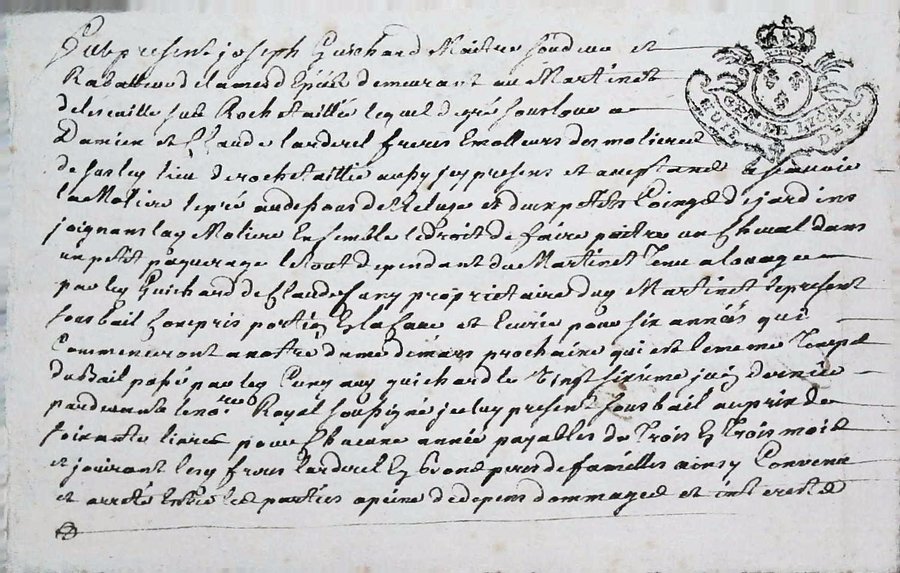 Fut present joseph Guichard Maitre fondeur et
Rabatteur de lames d'Épée demeurant au Martinet
de lescaille sur Rochetaillée lequel degré souslouë a
Damien et Claude Larderel freres Emolleurs des molieres
de sardy lieu de rochetaillée aussy jcy presens et aceptans a scavoir
la Moliere le pré au dessous de l'Ecluze et deux petits Loinges de jardins
joignans lad Moliere Ensemble le Droit de faire paitre un Cheval dans
un petit paquerage le tout dependant du Martinet Tenu a louage
par led Guichard de Claude Cuny proprietaire dud Martinet le present
sousbail Compris portion Ecluse et Curée pour six années qui
Commenceront a notre dame de mars prochaine qui est le meme Temps
du Bail passé par led Cuny aud guichard le Vingt sixieme juin dernier
pardevant le no.re Royal soussigné jceluy present sousbail au prix de
soixante livres pour Chacune année payables de Trois En Trois mois
et jouiront lesd freres Larderel En Bons peres de familles ainsy Convenu
et arreté Entre les parties a peine de depens dommages et interests
GEN DE LYON